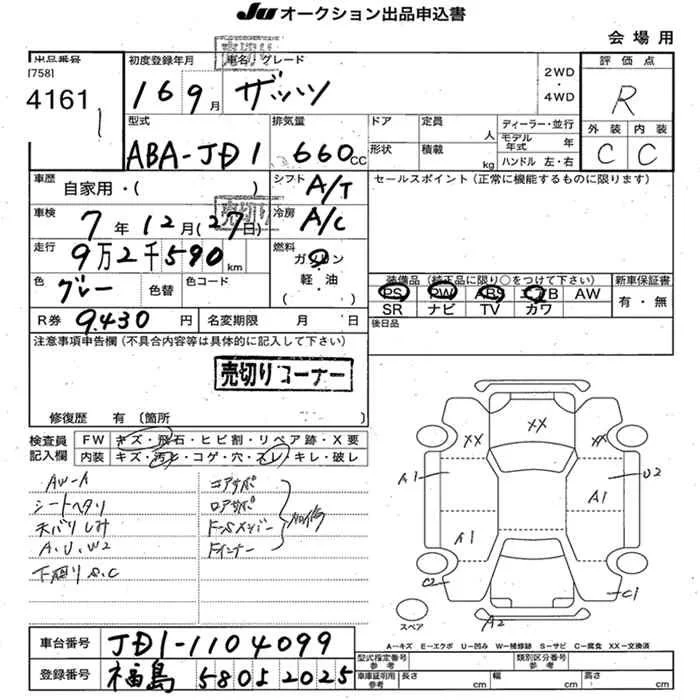 JU オークション出品申込書
会場用
出品番号
[758]
4161
初度登録年月
16 9月
車名・グレード
ザッツ
2WD
・
4WD
評価点
R
外装 内装
C C
型式
ABA-JD1
排気量
660cc
ドア
定員
人
ディーラー・並行
モデル年式 年
形状
積載
kg
ハンドル 左・右
車歴
自家用・( )
シフト
A/T
セールスポイント(正常に機能するものに限ります)
車検
7年12月(27日)
売切り
冷房
A/C
走行
9万2千590km
燃料
ガソリン
軽・油
( )
色
グレー
色替
色コード
装備品(純正品に限り○をつけて下さい)
PS PW ABS エアB AW
SR ナビ TV カワ
新車保証書
有・無
R券 9.430円
名変期限 月 日
後日品
注意事項申告欄(不具合内容等は具体的に記入して下さい)
売切りコーナー
修復歴 有(箇所 )
検査員
記入欄
FW キズ・飛石・ヒビ割・リペア跡・X要
内装 キズ・汚れ・コゲ・穴・スレ・キレ・破レ
AW-A
シートヘタリ
天バリしみ
A、U、W2
下廻りS.C
コアサポ
ロアサポ
F-Sメンバー
Fインナー
XX
XX
XX
A1
U2
A1
A1
C2
C1
A2
スペア
A-キズ E-エクボ U-凹み W-補修跡 S-サビ C-腐食 XX-交換済
車台番号 JD1-1104099
登録番号 福島 580 2025
型式指定番号 参考
類別区分番号 参考
車庫証明用 参考
長さ cm
幅 cm
高さ cm